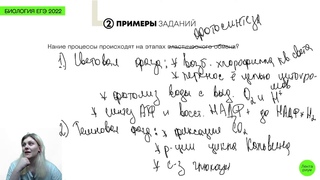 БИОЛОГИЯ ЕГЭ 2022
② ПРИМЕРЫ ЗАДАНИЙ
фотосинтеза
Какие процессы происходят на этапах пластического обмена?
1) Световая фаза: * возб. хлорофилла кв. света
* фотолиз воды с выд. O₂ и H⁺
* синтез АТФ и восст. НАДФ⁺ до НАДФ*H₂
2) Темновая фаза: * фиксация CO₂
* р-ции цикла Кальвина
* с-з глюкозы